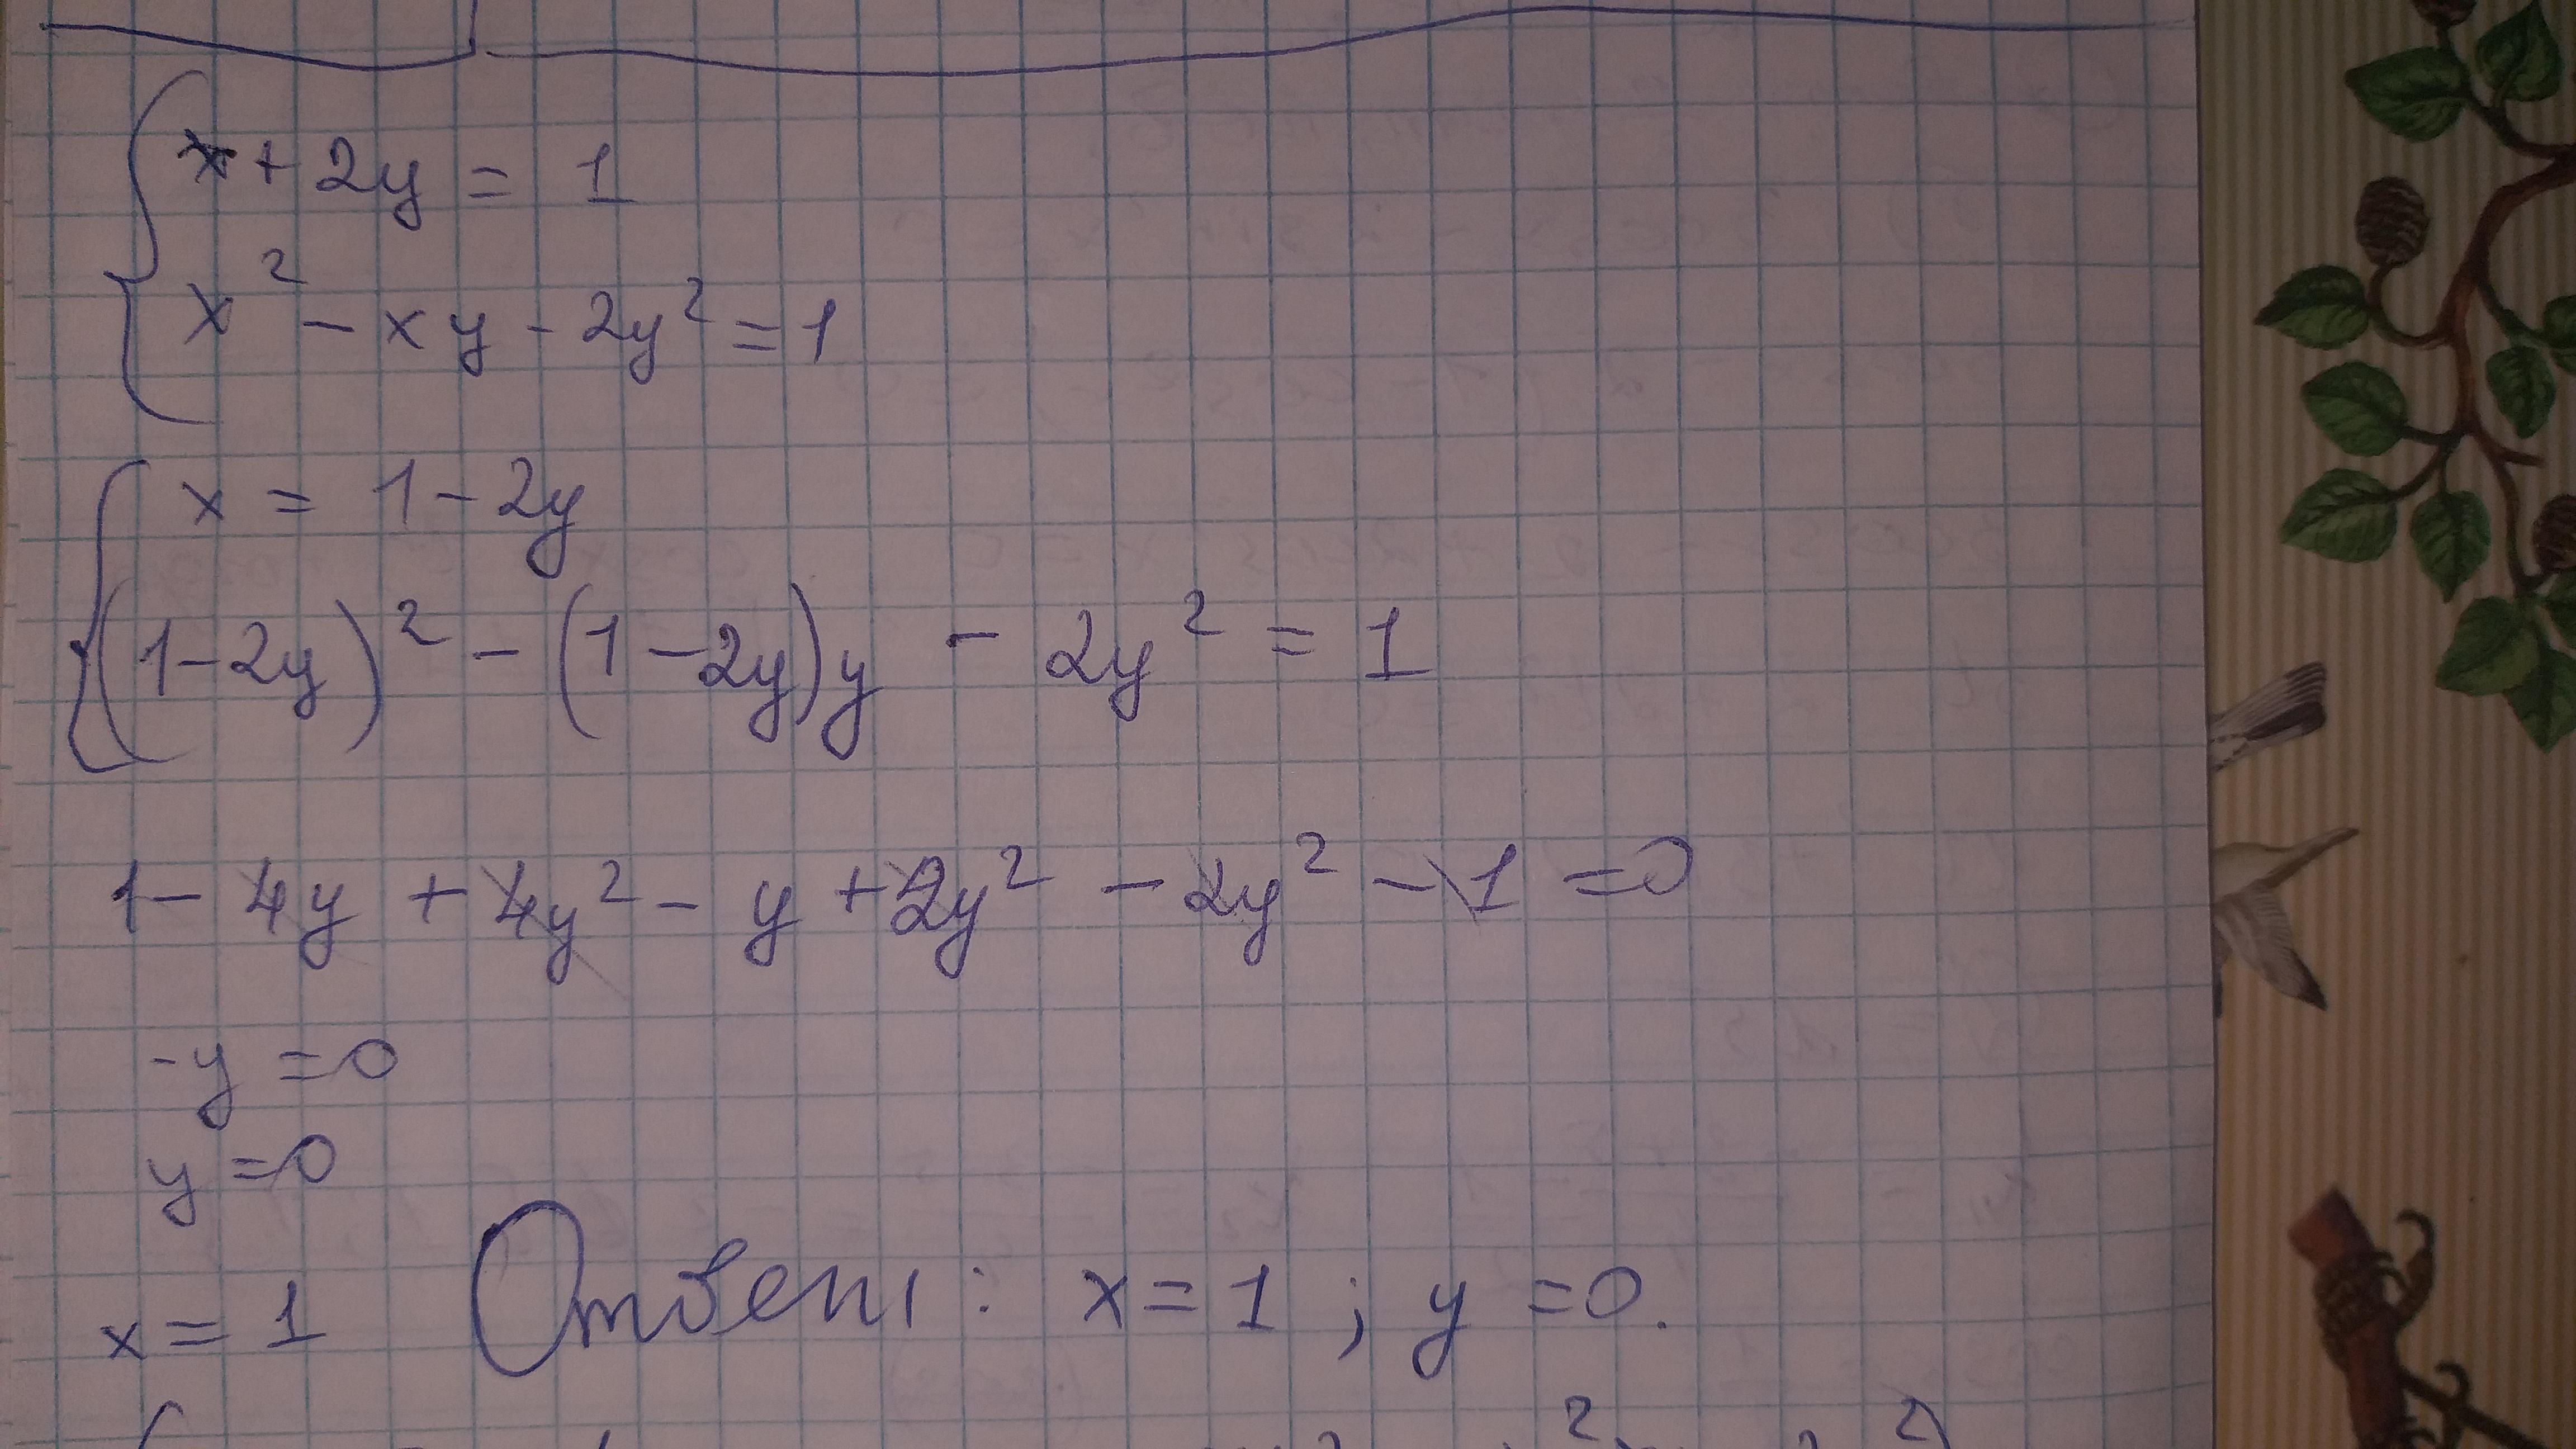 x + 2y = 1
x² - xy - 2y² = 1
x = 1 - 2y
(1 - 2y)² - (1 - 2y)y - 2y² = 1
1 - 4y + 4y² - y + 2y² - 2y² - 1 = 0
-y = 0
y = 0
x = 1 Ответ: x = 1 ; y = 0.